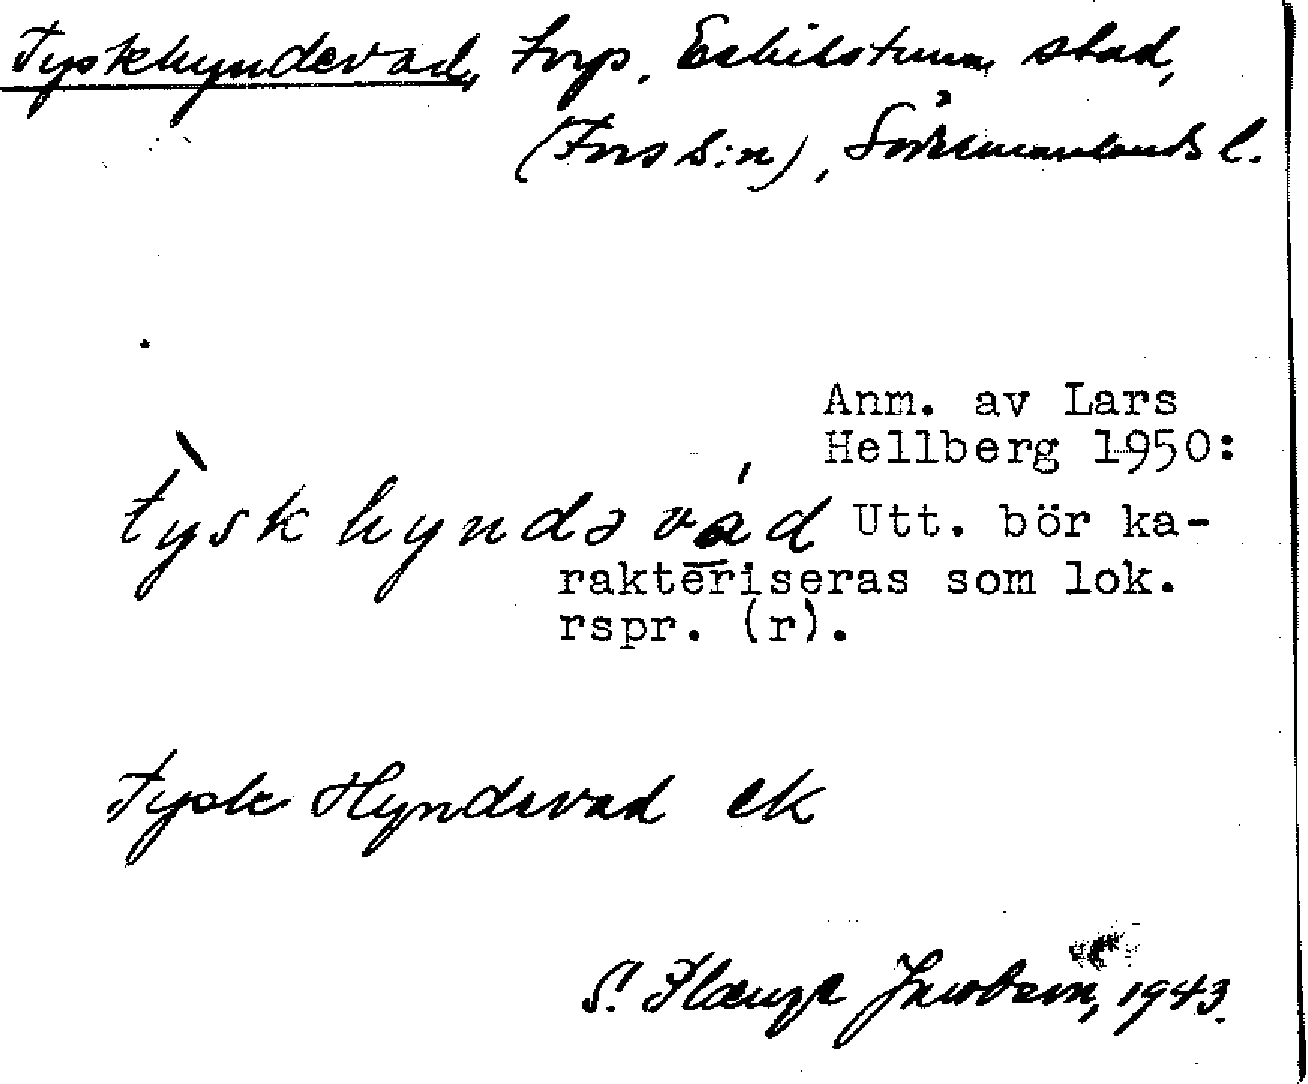 Tyskhyndevad, torp, Eskilstuna stad,
(Fors s:n), Södermanlands l.
Anm. av Lars
Hellberg 1950:
tyskhyndəvád Utt. bör ka-
rakteriseras som lok.
rspr. (r).
Tysk Hyndevad ek
S. Jacobson, 1943.